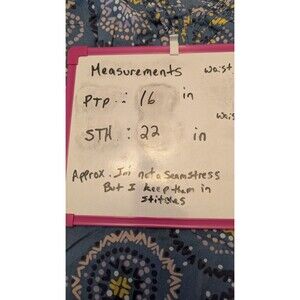 Measurements waist
PTP : 16 in
STH : 22 in
Approx. I'm not a seamstress
But I keep them in
stitches